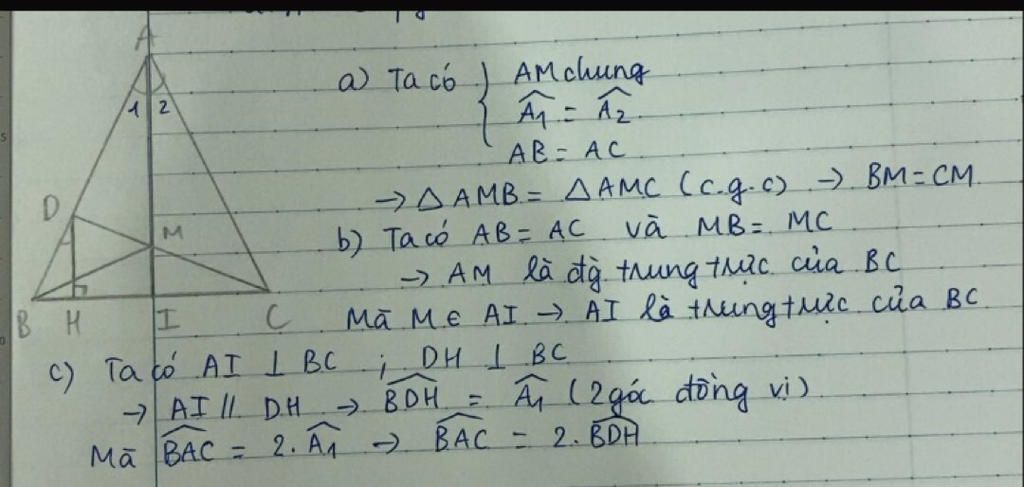 A
1 2
D
M
B H I C
a) Ta có { AM chung
Â₁ = Â₂
AB = AC
→ △AMB = △AMC (c.g.c) → BM = CM
b) Ta có AB = AC và MB = MC
→ AM là đg trung trực của BC
Mà M ∈ AI → AI là trung trực của BC
c) Ta có AI ⊥ BC ; DH ⊥ BC
→ AI // DH → \widehat{BDH} = Â₁ (2 góc đồng vị)
Mà \widehat{BAC} = 2.Â₁ → \widehat{BAC} = 2.\widehat{BDH}